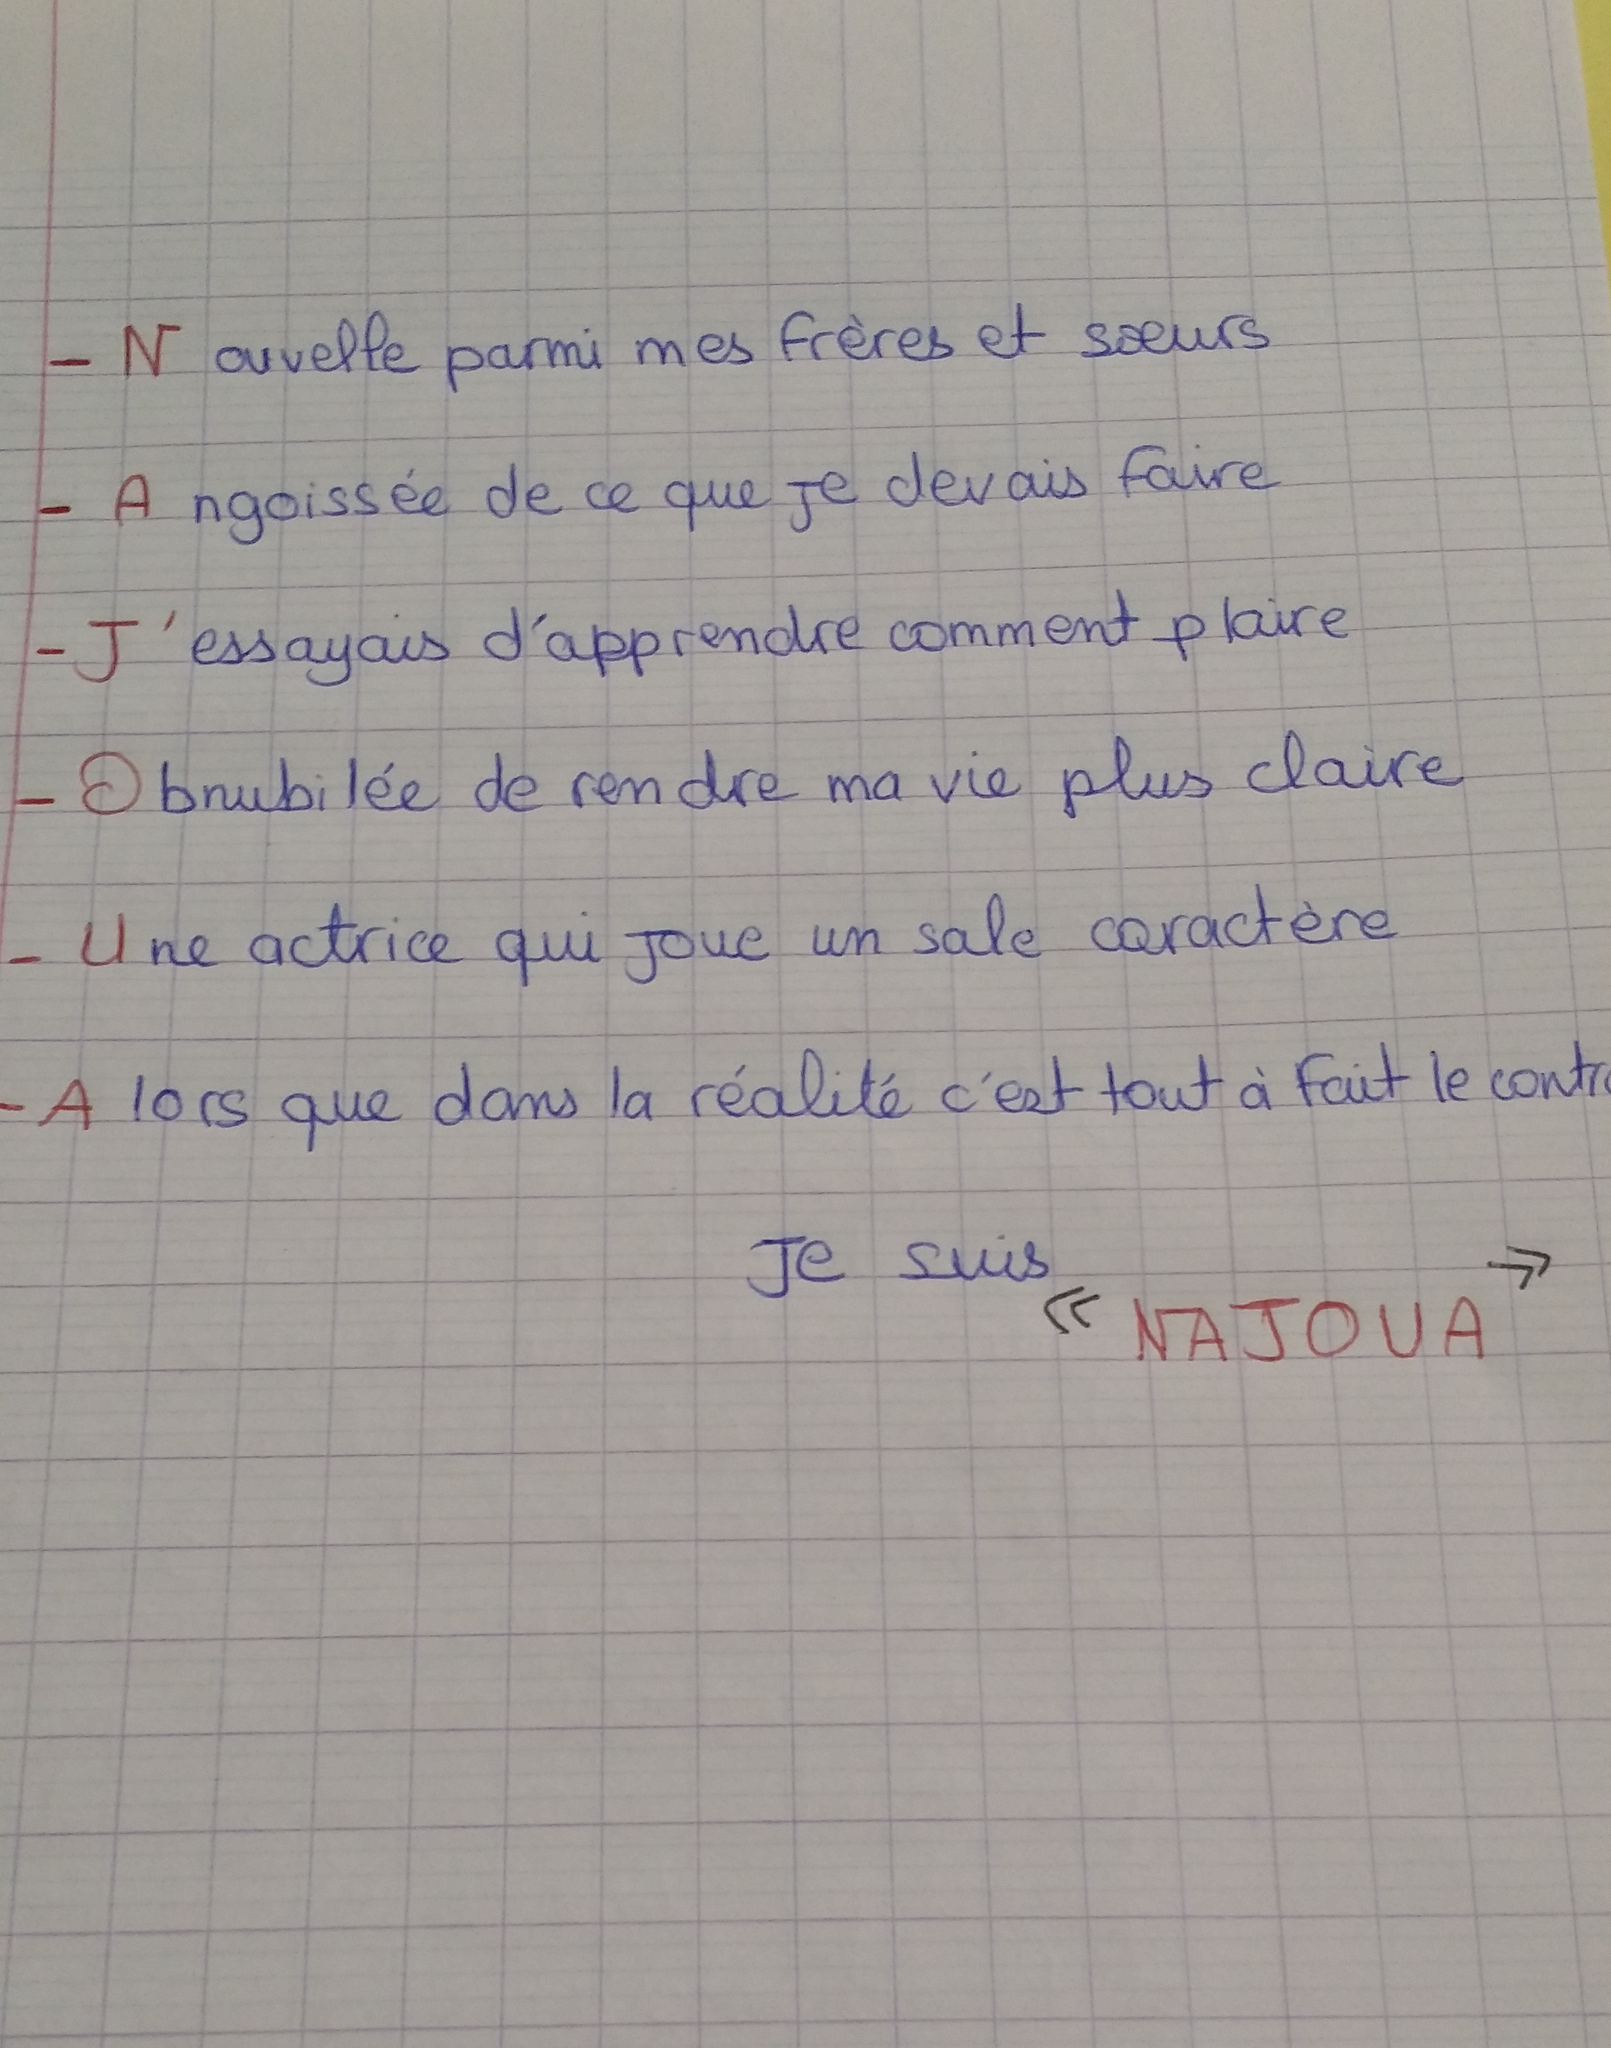 - Nouvelle parmi mes frères et sœurs
- Angoissée de ce que je devais faire
- J'essayais d'apprendre comment plaire
- Obnubilée de rendre ma vie plus claire
- Une actrice qui joue un sale caractère
- Alors que dans la réalité c'est tout à fait le contra
Je suis
« NAJOUA »